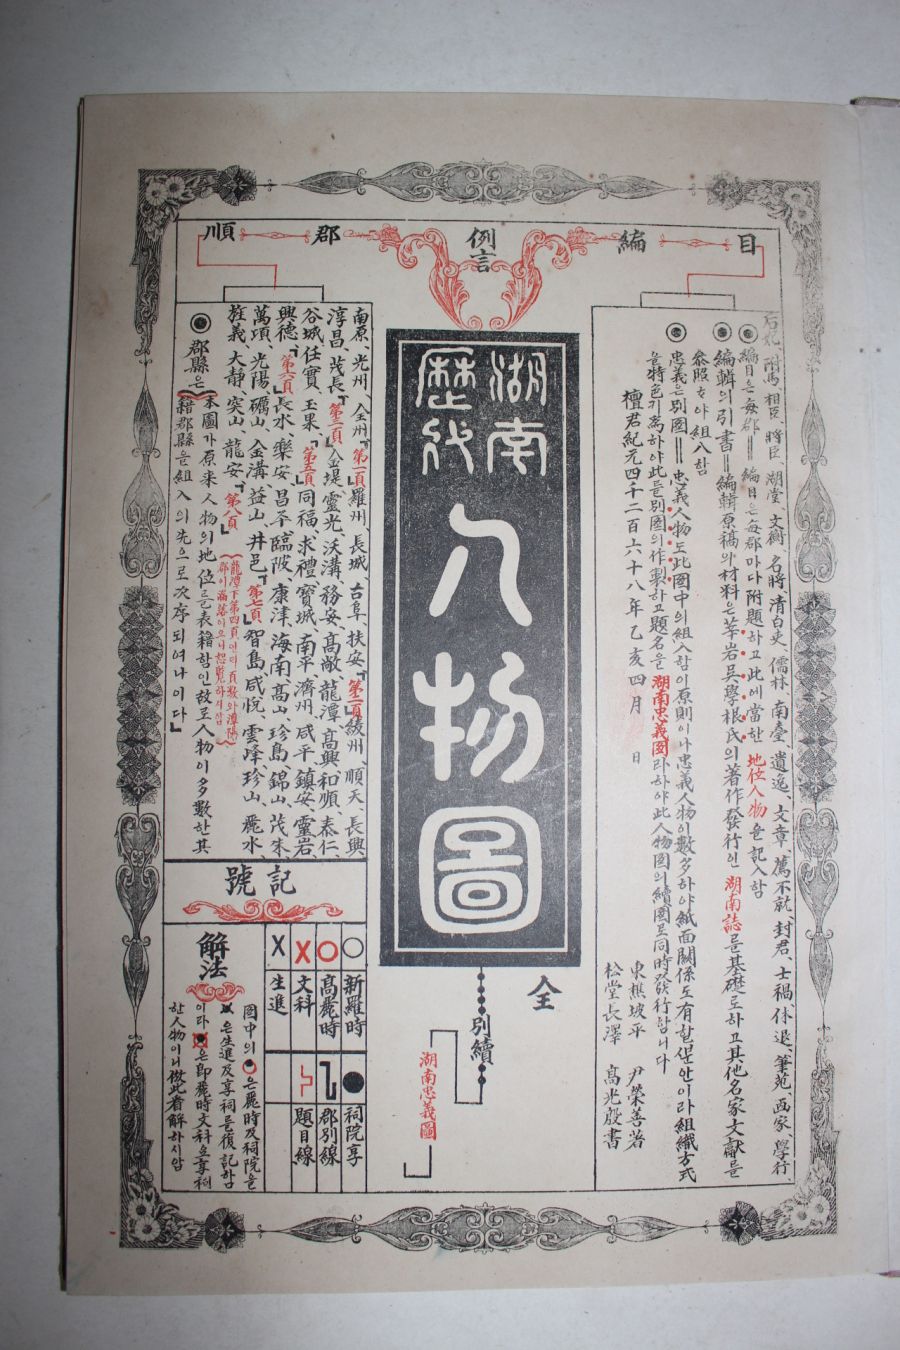 目編
例言
郡順
后妃、附馬、相臣、將臣、湖堂、文衡、名將、清白吏、儒林、南臺、遺逸、文章、薦不就、封君、士禍、休退、筆苑、画家、學行、
◉編目은每郡=編目은每郡마다附題하고此에當한地位人物을記入함
◉編輯의引書=編輯原稿와材料은莘岩吳學根氏의著作發行인湖南誌를基礎로하고其他名家文獻을
參照하야組入함
◉忠義은別圖=忠義人物도此图中의組入함이原則이나忠義人物이數多하야紙面關係도有할뿐안이라組織方式
을特色키爲하야此를別圖의作製하고題名을湖南忠義图라하야此人物图의續圖로同時發行합니다
檀君紀元四千二百六十八年乙亥四月 日
東樵坡平 尹榮善著
松堂長澤 高光殷書
湖南
歷代
人物圖
全
別續
湖南忠義圖
南原、光州、全州、「第一頁」羅州、長城、古阜、扶安、「第二頁」綾州、順天、長興
淳昌、茂長、「第三頁」金堤、靈光、沃溝、務安、高敞、龍潭、高興、和順、泰仁、
谷城、任實、玉果、「第五頁」同福、求禮、寶城、南平、濟州、咸平、鎮安、靈岩、
興德、「第六頁」長水、樂安、昌平、臨陂、康津、海南、高山、珍島、錦山、茂朱、
萬項、光陽、礪山、金溝、益山、井邑、「第七頁」智島、咸悅、雲峰、珍山、麗水、
旌義、大静、突山、龍安、「第八頁」
(龍潭下第四頁인이頁數와潭陽
郡이漏落이오니恕覽하시압)
◉郡縣은(本圖가原來人物의地位를表籍함인故로人物이多數한其
籍郡縣을組入의先으로次序되여나이다」
記號
○ 新羅時
○ 高麗時
X 文科
X 生進
● 祠院享
郡別線
題目線
解法
图中의●○은麗時及祠院을
X은生進及享祠를復記하고
이라X은即麗時文科로享祠
한人物이니倣此看解하시압